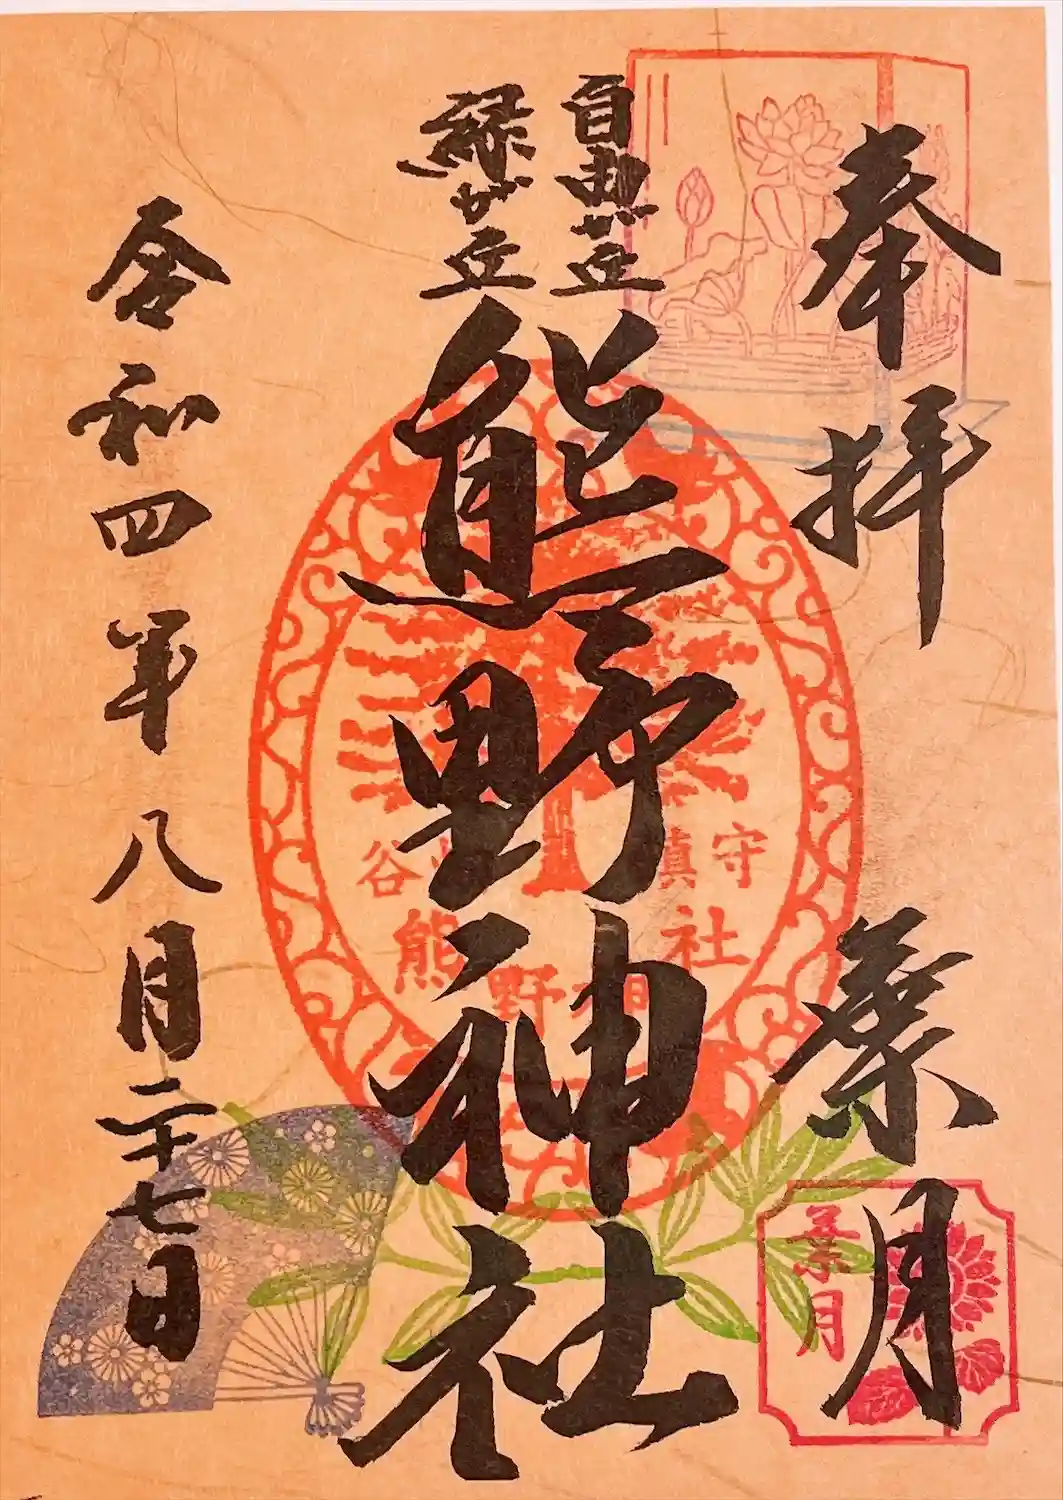 奉拝
葉月
自由が丘
緑が丘
熊野神社
令和四年八月二十七日
守
鎮
谷
熊野神社
葉月